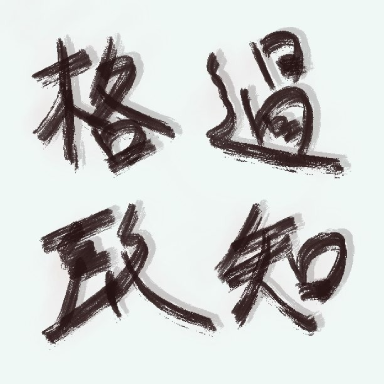 格過
致知